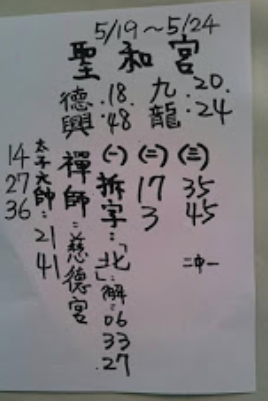 5/19～5/24
聖和宮
九龍:20.24
德興.18.48
(一)(二)(三)
35
45
二中一
17
3
拆字:「北」解=06
33
.27
禪師=慈德宮
太子大師=21
41
14
27
36